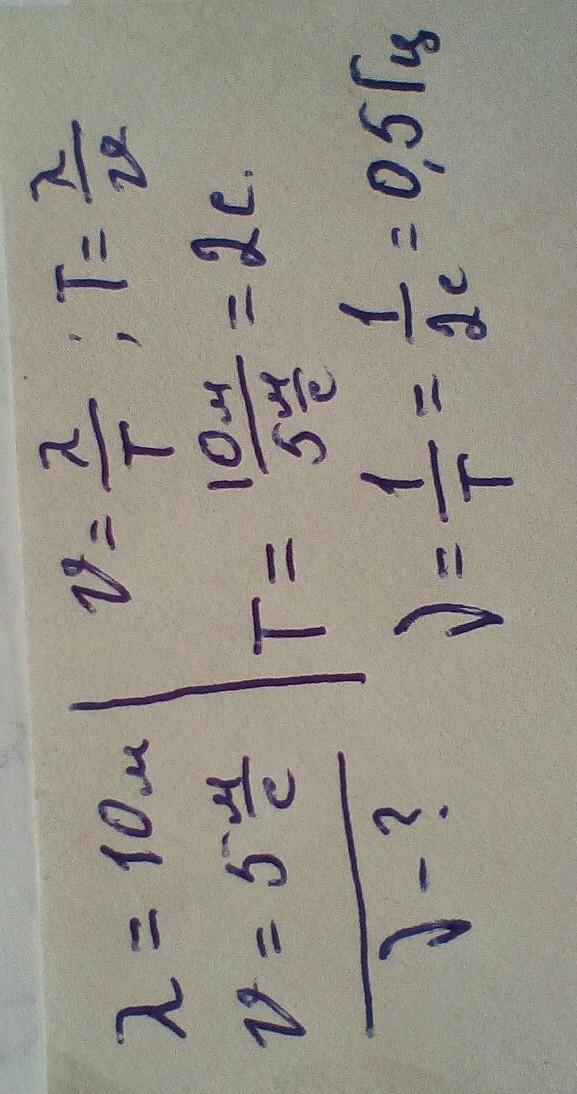 λ = 10м
υ = 5 м/с
ν - ?
υ = λ/T ; T = λ/υ
T = 10м / 5 м/с = 2с.
ν = 1/T = 1/2с = 0,5 Гц